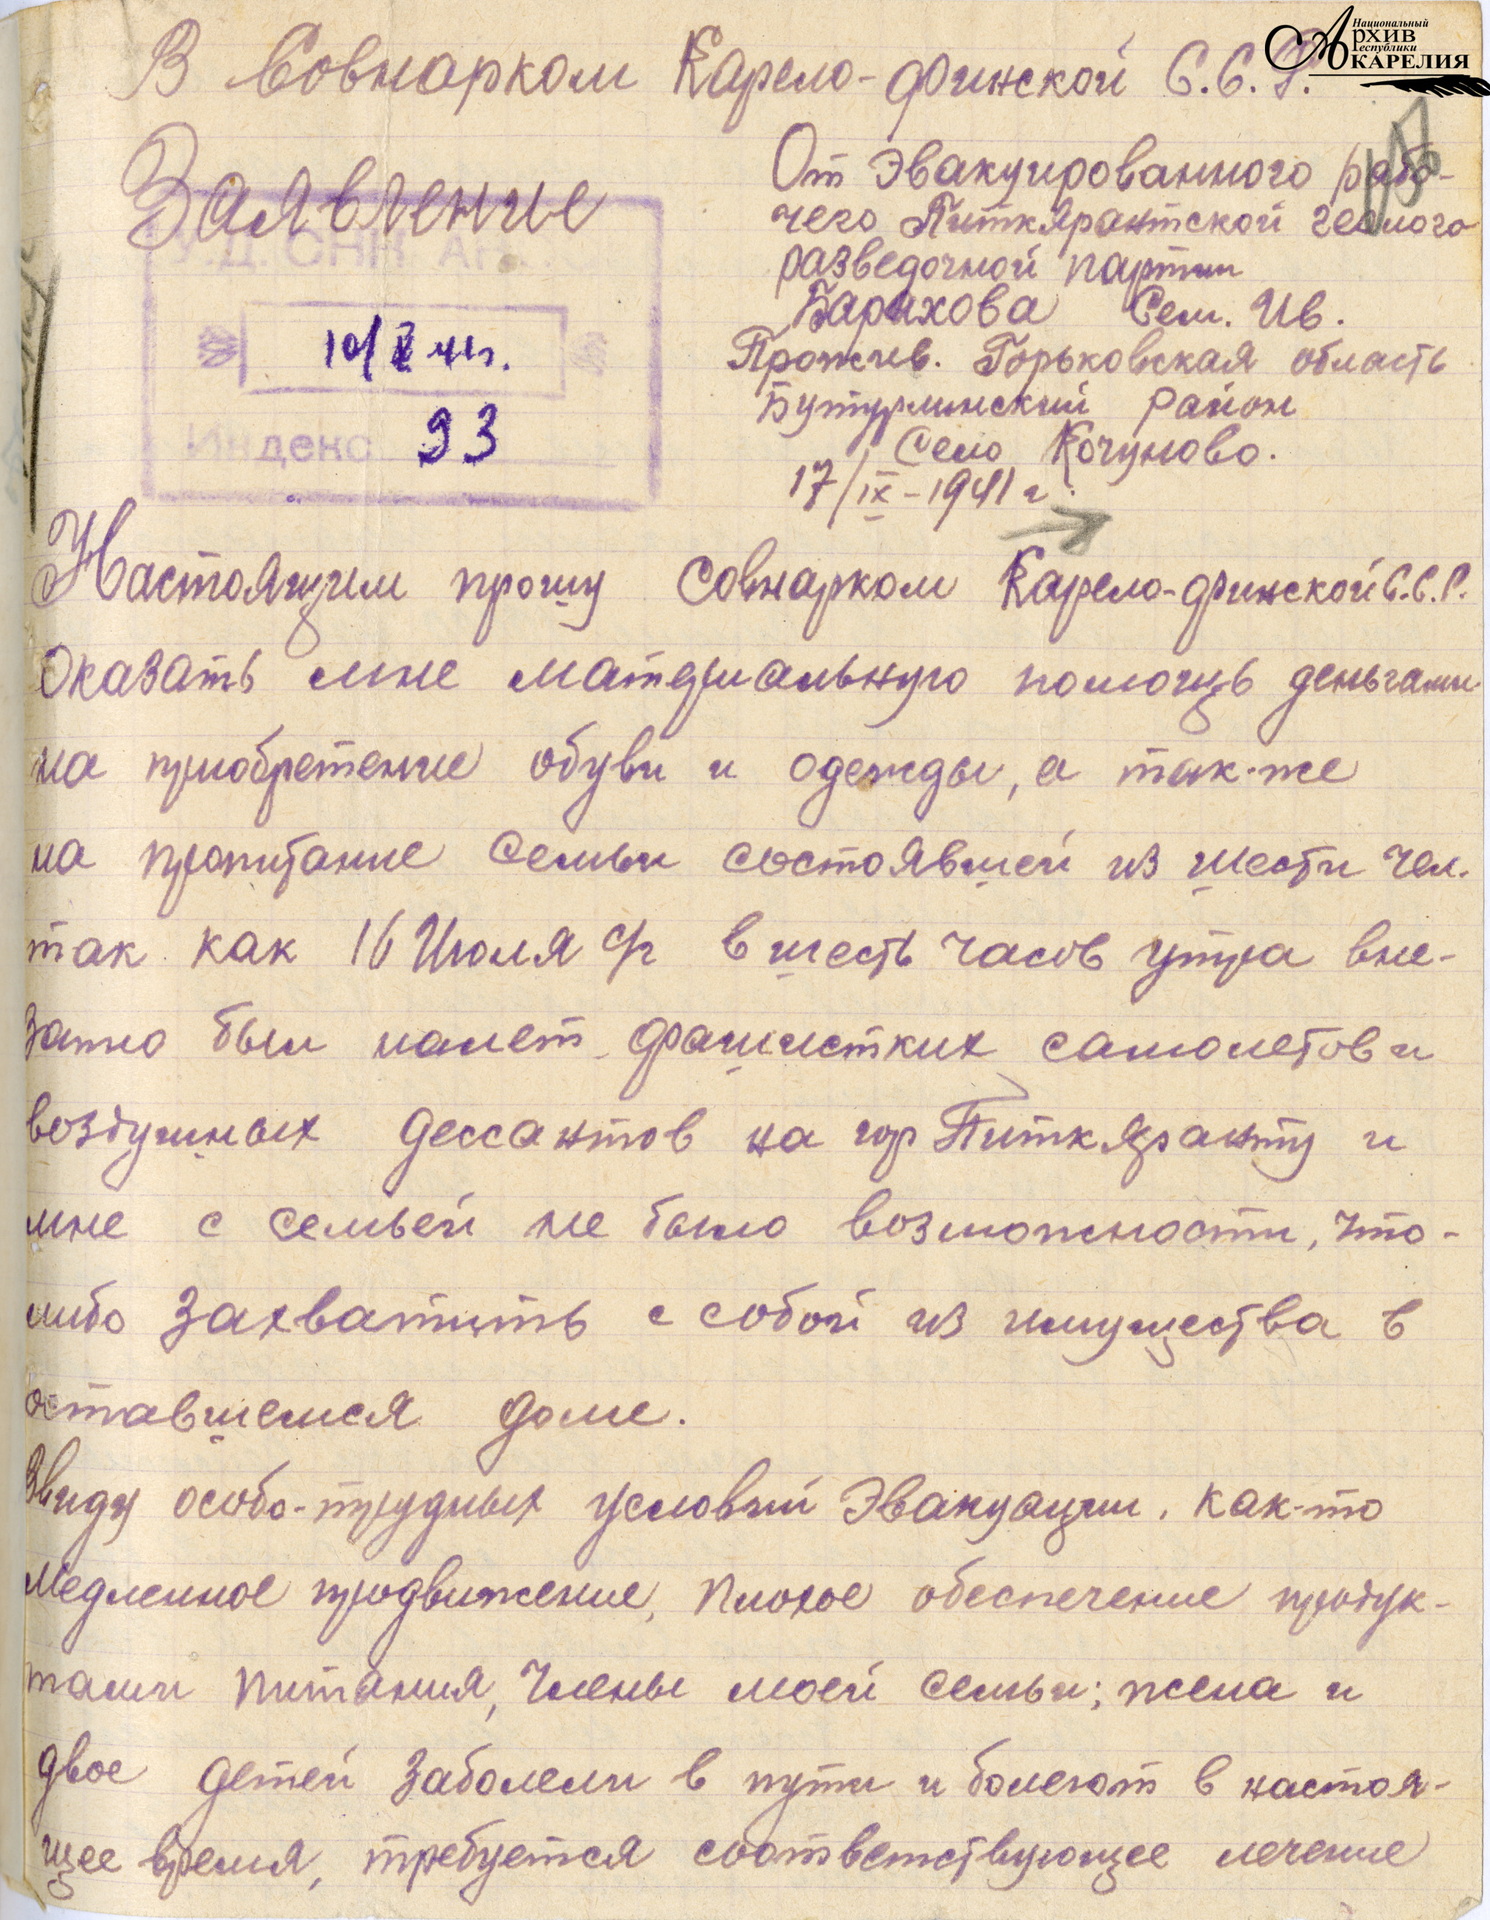 Национальный
Архив
Республики
Карелия
В Совнарком Карело-финской С.С.Р.
Заявление
От Эвакуированного рабо-
чего Питкярантской геолого
разведочной партии
Барихова Сем. Ив.
Прожив. Горьковская область
Бутурлинский район
Село Кочуново.
17/IX-1941 г.
У.Д. СНК
10/X 41г.
Индекс 93
Настоящим прошу Совнарком Карело-финской С.С.Р.
Оказать мне материальную помощь деньгами
на приобретение обуви и одежды, а так-же
на пропитание семьи состоявшей из шести чел.
так как 16 Июля с/г в шесть часов утра вне-
запно был налет фашистких самолетов и
воздушных дессантов на гор Питкяранту и
мне с семьей не было возможности, что-
либо захватить с собой из имущества в
оставшемся доме.
Ввиду особо-трудных условий Эвакуации, как-то
Медленное продвижение, плохое обеспечение продук-
тами питания, Члены моей семьи; жена и
двое детей заболели в пути и болеют в настоя-
щее время, требуется соответствующее лечение